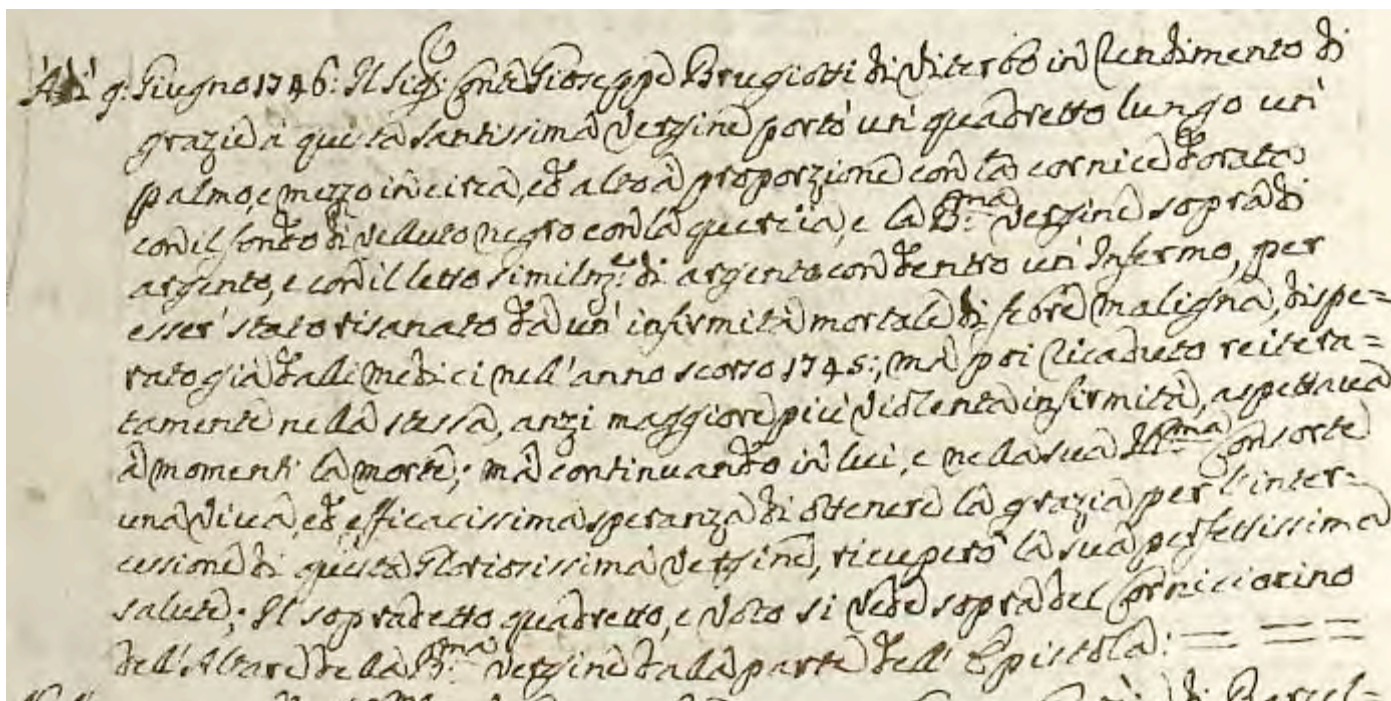 A dì 9: Giugno 1746: Il Sig:r Conte Gioseppe Brugiotti di Viterbo in rendimento di
grazie à questa santissima Vergine portò un' quadretto lungo un'
palmo, e mezzo in circa, ed alto à proporzione con la cornice dorata
con il fondo di velluto negro con la quercia, e la B:ma Vergine sopra di
argento, e con il letto similm:e di argento con dentro un' Infermo, per
esser' stato risanato da un' infirmità mortale di febre maligna, dispe-
rato già dalli medici nell'anno scorso 1745:, mà poi ricaduto reitera=
tamente nella stessa, anzi maggiore più violenta infirmità, aspettava
à momenti la morte; mà continuando in lui, e nella sua Ill:ma Consorte
una viva, ed efficacissima speranza di ottenere la grazia per l'inter-
cessione di questa Gloriosissima Vergine, ricuperò la sua perfettissima
salute; Il sopradetto quadretto, e voto si vede sopra del Corniciorino
dell'Altare della B:ma Vergine dalla parte dell' Epistola: = = =